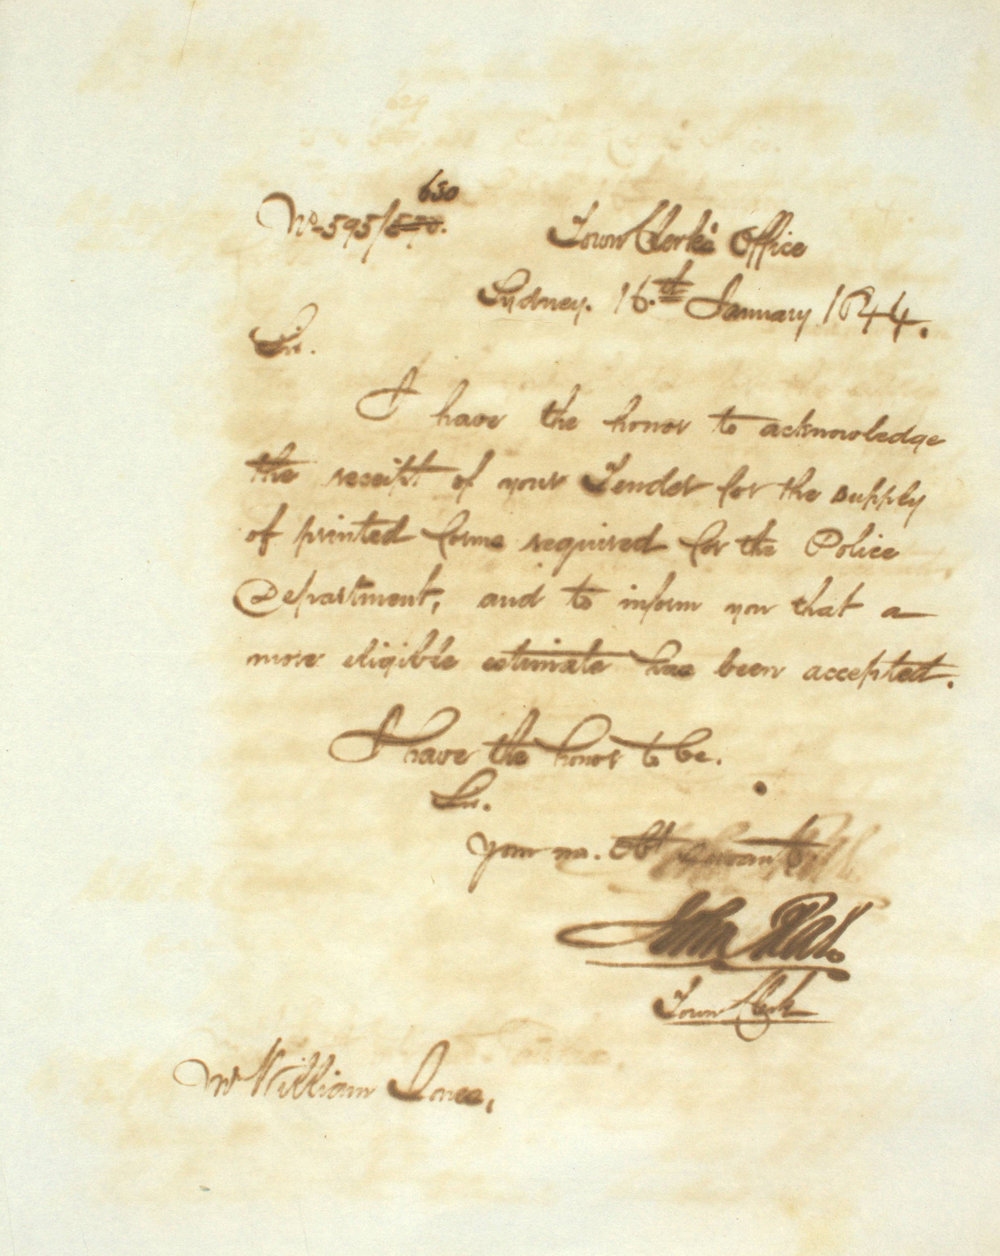 630
No 595/570.
Town Clerk's Office
Sydney. 16.th January 1844.
Sir.
I have the honor to acknowledge
the receipt of your Tender for the supply
of printed forms required for the Police
Department, and to inform you that a
more eligible estimate has been accepted.
I have the honor to be.
Sir.
Your mo. Obt Servant
John
Town Clerk
Mr William Jones,